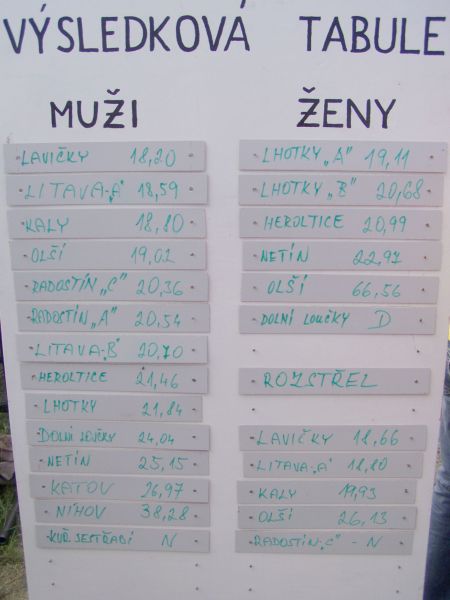 VÝSLEDKOVÁ TABULE
MUŽI
LAVIČKY 18,20
LITAVA „A" 18,59
KALY 18,80
OLŠÍ 19,02
RADOSTÍN „C" 20,36
RADOSTÍN „A" 20,54
LITAVA „B" 20,70
HEROLTICE 21,46
LHOTKY 21,84
DOLNÍ LOUČKY 24,04
NETÍN 25,15
KATOV 26,97
NIHOV 38,28
KUŘ. SESTŘADI N
ŽENY
LHOTKY „A" 19,11
LHOTKY „B" 20,68
HEROLTICE 20,99
NETÍN 22,97
OLŠÍ 66,56
DOLNÍ LOUČKY D
ROZSTŘEL
LAVIČKY 18,66
LITAVA „A" 18,80
KALY 19,93
OLŠÍ 26,13
RADOSTÍN „C" - N